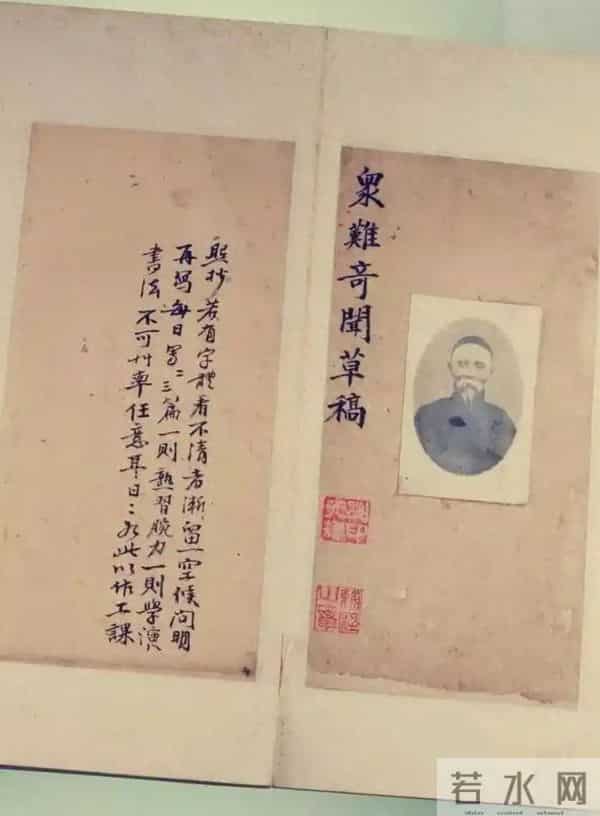 衆難奇聞草稿
照抄若有字體看不清者漸留一空候問明
再寫每日寫二三篇一則熟習腕力一則學演
書法不可艸率任意耳日〻如此以作工課
若水网